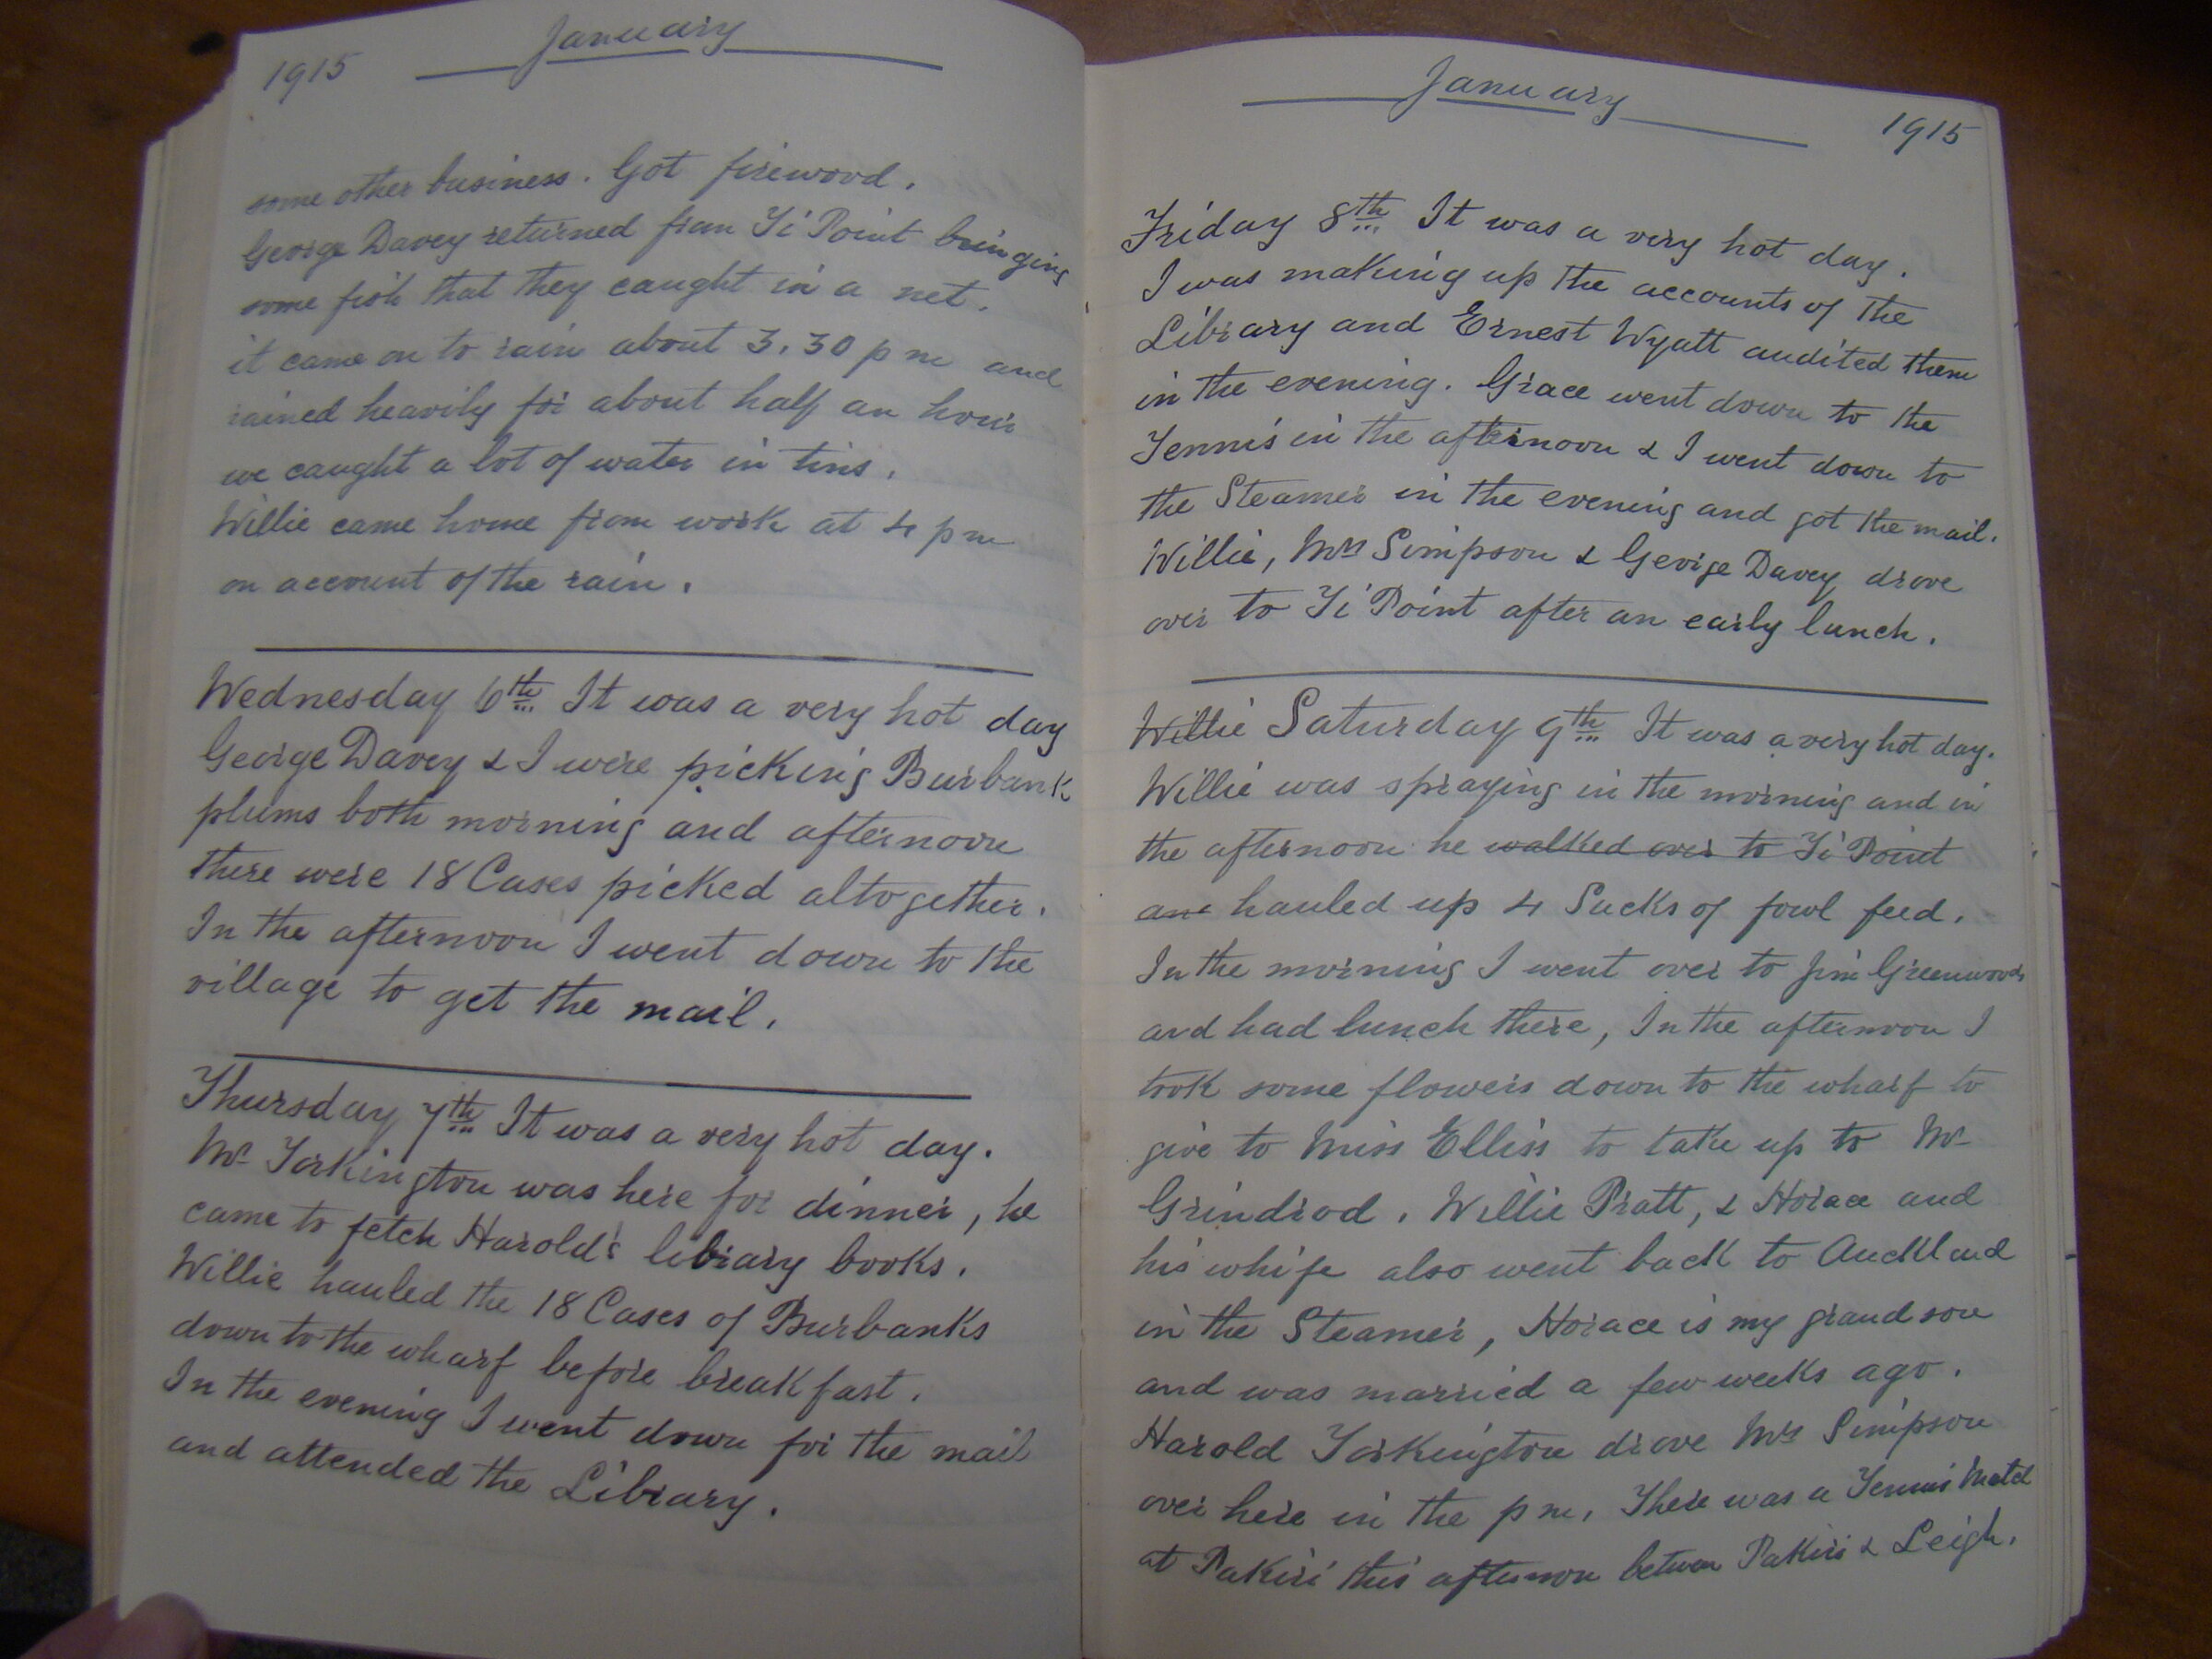 1915 January
some other business. Got firewood.
George Davey returned from Ti Point bringing
some fish that they caught in a net.
it came on to rain about 3.30 pm and
rained heavily for about half an hour
we caught a lot of water in tins.
Willie came home from work at 4 pm
on account of the rain.
Wednesday 6th It was a very hot day
George Davey & I were picking Burbank
plums both morning and afternoon
there were 18 Cases picked altogether.
In the afternoon I went down to the
village to get the mail.
Thursday 7th It was a very hot day.
Mr Torkington was here for dinner, he
came to fetch Harold's library books.
Willie hauled the 18 Cases of Burbanks
down to the wharf before breakfast.
In the evening I went down for the mail
and attended the Library.
January 1915
Friday 8th It was a very hot day.
I was making up the accounts of the
Library and Ernest Wyatt audited them
in the evening. Grace went down to the
Tennis in the afternoon & I went down to
the Steamer in the evening and got the mail.
Willie, Mrs Simpson & George Davey drove
over to Ti Point after an early lunch.
Willie Saturday 9th It was a very hot day.
Willie was spraying in the morning and in
the afternoon he walked over to Ti Point
and hauled up 4 Sacks of fowl feed.
In the morning I went over to Jim Greenwoods
and had lunch there, In the afternoon I
took some flowers down to the wharf to
give to Miss Elliss to take up to Mr
Grindrod. Willie Pratt, & Horace and
his whife also went back to Auckland
in the Steamer, Horace is my grand son
and was married a few weeks ago.
Harold Torkington drove Mrs Simpson
over here in the pm, There was a Tennis Match
at Pakiri this afternoon between Pakiri & Leigh.